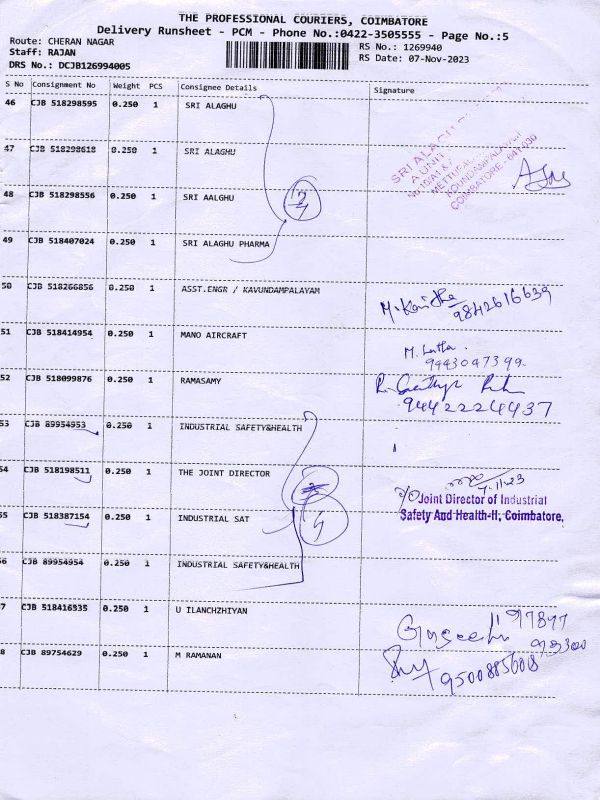 THE PROFESSIONAL COURIERS, COIMBATORE
Delivery Runsheet - PCM - Phone No.:0422-3505555 - Page No.:5
Route: CHERAN NAGAR
RS No.: 1269940
Staff: RAJAN
RS Date: 07-Nov-2023
DRS No.: DCJB126994005
S No Consignment No Weight PCS Consignee Details Signature
46 CJB 518298595 0.250 1 SRI ALAGHU
47 CJB 518298618 0.250 1 SRI ALAGHU
SRI ALAGHU
A UNIT
COIMBATORE - 641 030
48 CJB 518298556 0.250 1 SRI AALGHU
49 CJB 518407024 0.250 1 SRI ALAGHU PHARMA
50 CJB 518266856 0.250 1 ASST.ENGR / KAVUNDAMPALAYAM
9842616639
51 CJB 518414954 0.250 1 MANO AIRCRAFT
M. Latha.
9443047399.
52 CJB 518099876 0.250 1 RAMASAMY
9442224437
53 CJB 89954953 0.250 1 INDUSTRIAL SAFETY&HEALTH
54 CJB 518198511 0.250 1 THE JOINT DIRECTOR
7.11.23
Joint Director of Industrial
Safety And Health-II, Coimbatore.
55 CJB 518387154 0.250 1 INDUSTRIAL SAT
4
56 CJB 89954954 0.250 1 INDUSTRIAL SAFETY&HEALTH
7 CJB 518416535 0.250 1 U ILANCHZHIYAN
8 CJB 89754629 0.250 1 M RAMANAN
9500885608